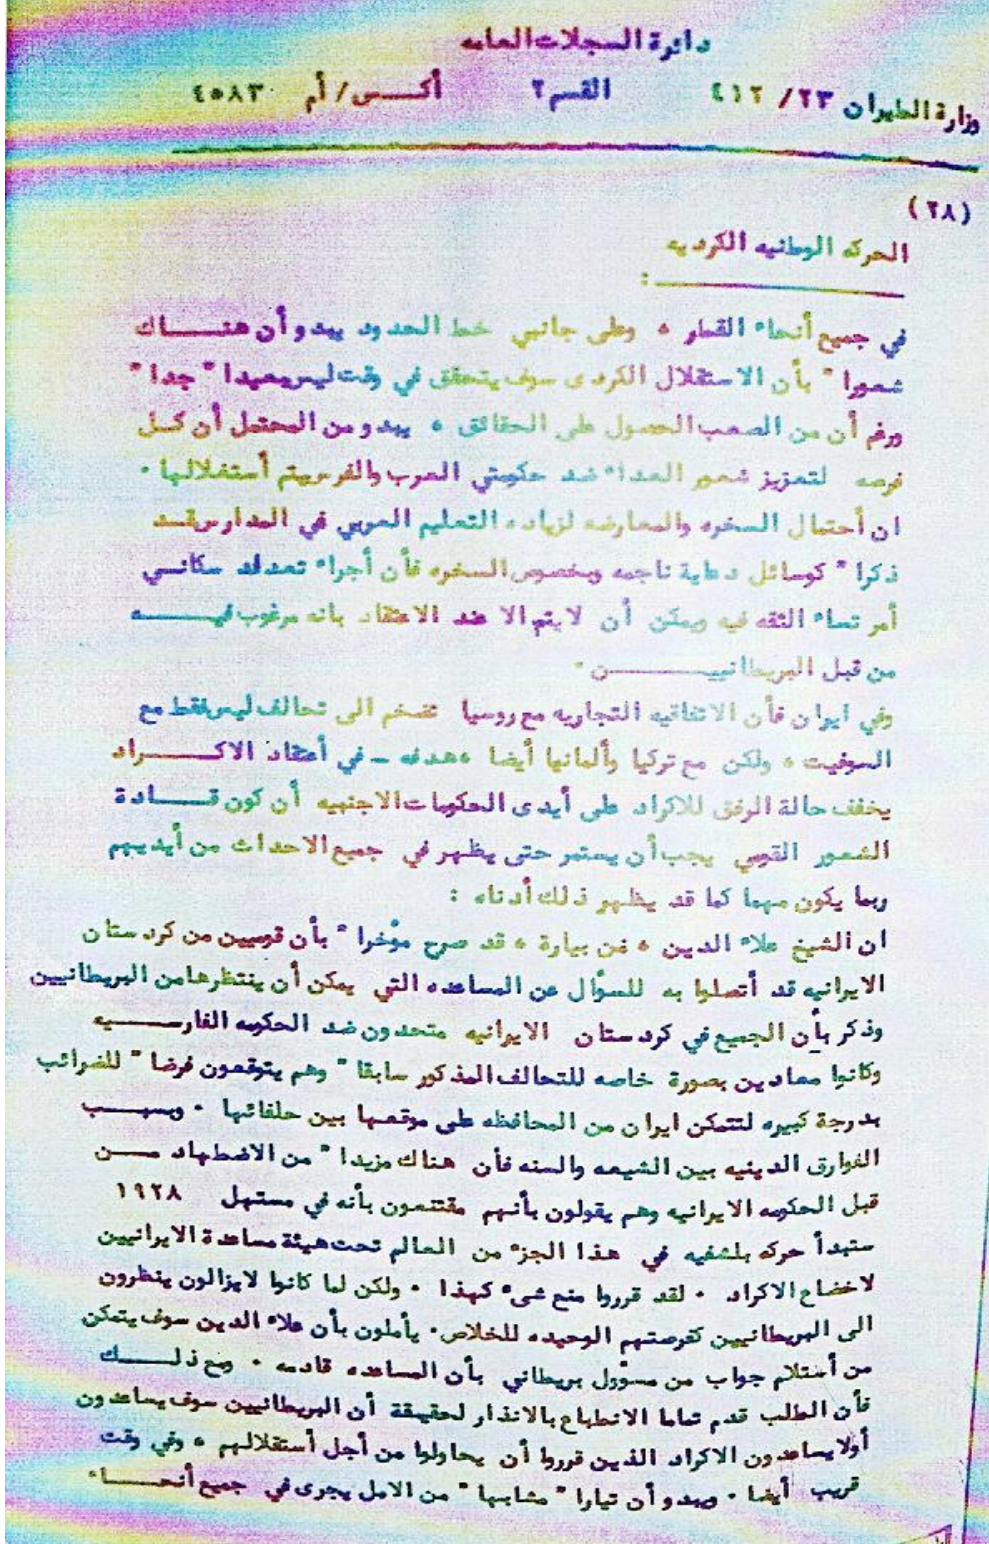 دائرة السجلات العامه
وزارة الطيران ٢٣/ ٤١٢ القسم ٢ أكس/ أم ٤٥٨٣
(٢٨)
الحركه الوطنيه الكرديه
:
في جميع أنحاء القطر ، وعلى جانبي خط الحدود يبدو أن هنـــاك
شعورا " بأن الاستقلال الكردى سوف يتحقق في وقت ليس بعيدا " جدا "
ورغم أن من الصعب الحصول على الحقائق ، يبدو من المحتمل أن كـل
فرصه لتعزيز شعور العداء ضد حكومتي العرب والفرس يتم أستغلالها ٠
ان أحتمال السخره والمعارضه لزياده التعليم العربي في المدارس قـد
ذكرا " كوسائل دعاية ناجحه وبخصوص السخره فأن أجراء تعداد سكانـي
أمر تساء الثقه فيه ويمكن أن لايتم الا عند الاعتقاد بانه مرغوب فيــه
من قبل البريطانييــــن ٠
وفي ايران فأن الاتفاقيه التجاريه مع روسيا تضخم الى تحالف ليس فقط مع
السوفيت ، ولكن مع تركيا وألمانيا أيضا ،هدفه ـ في أعتقاد الاكـــراد
يخفف حالة الرفق للاكراد على أيدى الحكومات الاجنبيه أن كون قـــادة
الشعور القومي يجب أن يستمر حتى يظهر في جميع الاحداث من أيديهم
ربما يكون مهما كما قد يظهر ذلك أدناه :
ان الشيخ علاء الدين ، من بيارة ، قد صرح مؤخرا " بأن قوميين من كردستان
الايرانيه قد أتصلوا به للسؤال عن المساعده التي يمكن أن ينتظرها من البريطانيين
وذكر بأن الجميع في كردستان الايرانيه متحدون ضد الحكومه الفارســـيه
وكانوا معادين بصورة خاصه للتحالف المذكور سابقا " وهم يتوقعون فرضا " للضرائب
بدرجة كبيره لتتمكن ايران من المحافظه على موقعها بين حلفائها ٠ وبسبــب
الفوارق الدينيه بين الشيعه والسنه فأن هناك مزيدا " من الاضطهاد مــن
قبل الحكومه الايرانيه وهم يقولون بأنهم مقتنعون بأنه في مستهل ١٩٢٨
ستبدأ حركه بلشفيه في هذا الجزء من العالم تحت هيئة مساعدة الايرانيين
لاخضاع الاكراد ٠ لقد قرروا منع شىء كهذا ٠ ولكن لما كانوا لايزالون ينظرون
الى البريطانيين كفرصتهم الوحيده للخلاص٠ يأملون بأن علاء الدين سوف يتمكن
من أستلام جواب من مسؤول بريطاني بأن المساعده قادمه ٠ ومع ذلـــك
فأن الطلب قدم تماما الانطباع بالانذار لحقيقة أن البريطانيين سوف يساعدون
أولا يساعدون الاكراد الذين قرروا أن يحاولوا من أجل أستقلالهم ، وفي وقت
قريب أيضا ٠ ويبدو أن تيارا " مشابها " من الامل يجرى في جميع أنحـــاء